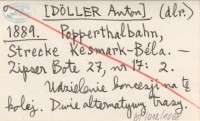 [DÖLLER Anton] (dlr.)
1889. Popperthalbahn,
Strecke Kesmark-Béla. —
Zipser Bote 27, nr 17: 2.
Udzielenie koncesji na tę
kolej. Dwie alternatywy trasy.